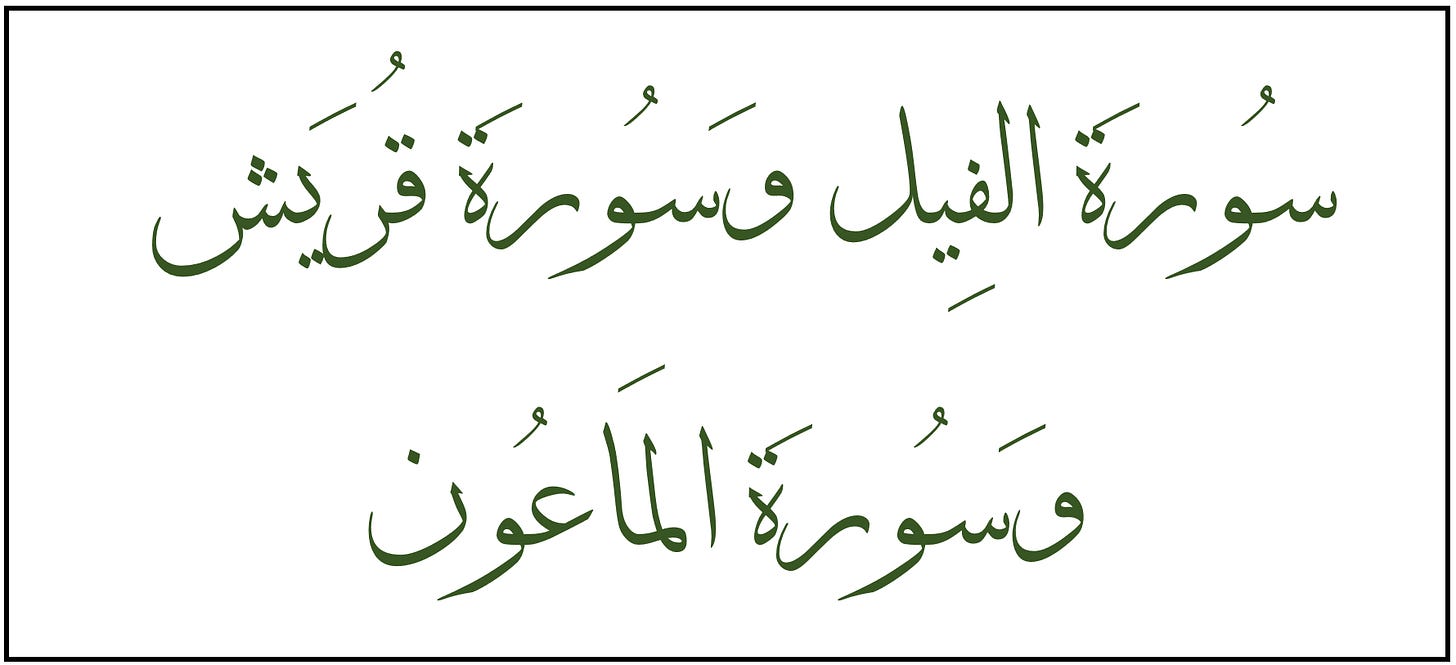 سُورَة الفِيل وَسُورَة قُريَش
وَسُورَة المَاعُون